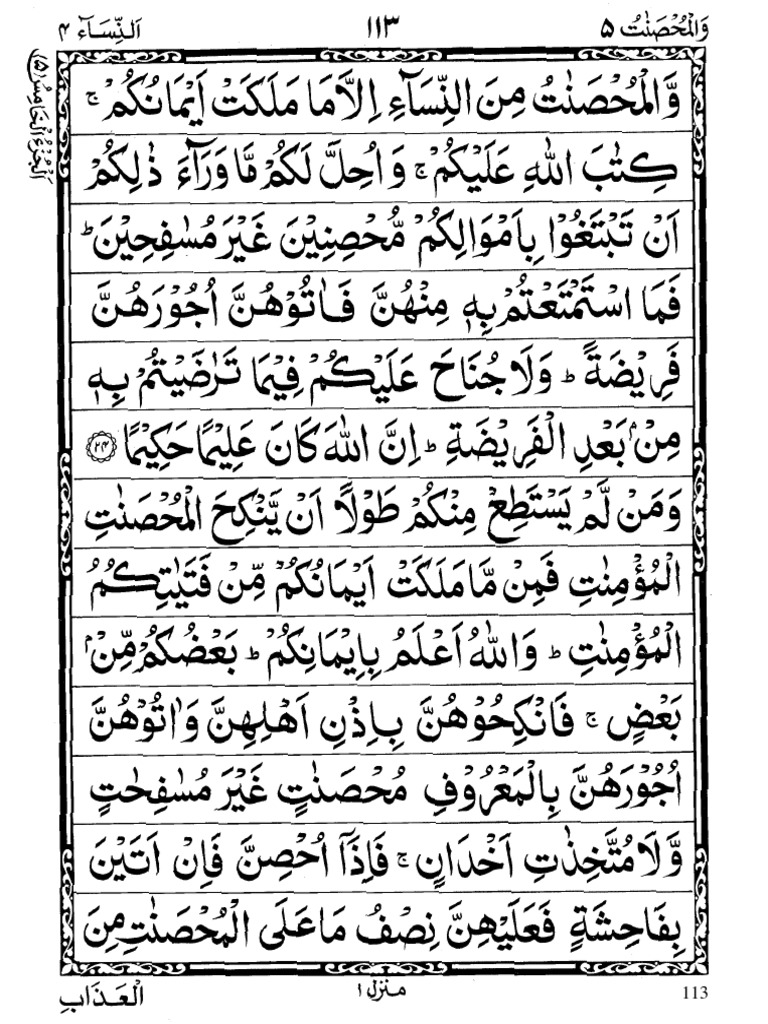 وَالْمُحْصَنٰتُ ۵ ١١٣ اَلنِّسَآء ۴
اَلْجُزْءُ الْخَامِسُ (۵)
وَّالْمُحْصَنٰتُ مِنَ النِّسَآءِ اِلَّا مَا مَلَكَتْ اَيْمَانُكُمْ ۚ
كِتٰبَ اللّٰهِ عَلَيْكُمْ ۚ وَاُحِلَّ لَكُمْ مَّا وَرَآءَ ذٰلِكُمْ
اَنْ تَبْتَغُوْا بِاَمْوَالِكُمْ مُّحْصِنِيْنَ غَيْرَ مُسٰفِحِيْنَ ؕ
فَمَا اسْتَمْتَعْتُمْ بِهٖ مِنْهُنَّ فَاٰتُوْهُنَّ اُجُوْرَهُنَّ
فَرِيْضَةً ؕ وَلَا جُنَاحَ عَلَيْكُمْ فِيْمَا تَرٰضَيْتُمْ بِهٖ
مِنْۢ بَعْدِ الْفَرِيْضَةِ ؕ اِنَّ اللّٰهَ كَانَ عَلِيْمًا حَكِيْمًا ۲۴
وَمَنْ لَّمْ يَسْتَطِعْ مِنْكُمْ طَوْلًا اَنْ يَّنْكِحَ الْمُحْصَنٰتِ
الْمُؤْمِنٰتِ فَمِنْ مَّا مَلَكَتْ اَيْمَانُكُمْ مِّنْ فَتَيٰتِكُمُ
الْمُؤْمِنٰتِ ؕ وَاللّٰهُ اَعْلَمُ بِاِيْمَانِكُمْ ؕ بَعْضُكُمْ مِّنْۢ
بَعْضٍ ۚ فَانْكِحُوْهُنَّ بِاِذْنِ اَهْلِهِنَّ وَاٰتُوْهُنَّ
اُجُوْرَهُنَّ بِالْمَعْرُوْفِ مُحْصَنٰتٍ غَيْرَ مُسٰفِحٰتٍ
وَّلَا مُتَّخِذٰتِ اَخْدَانٍ ۚ فَاِذَآ اُحْصِنَّ فَاِنْ اَتَيْنَ
بِفَاحِشَةٍ فَعَلَيْهِنَّ نِصْفُ مَا عَلَى الْمُحْصَنٰتِ مِنَ
113 منزل ١ الْعَذَابِ